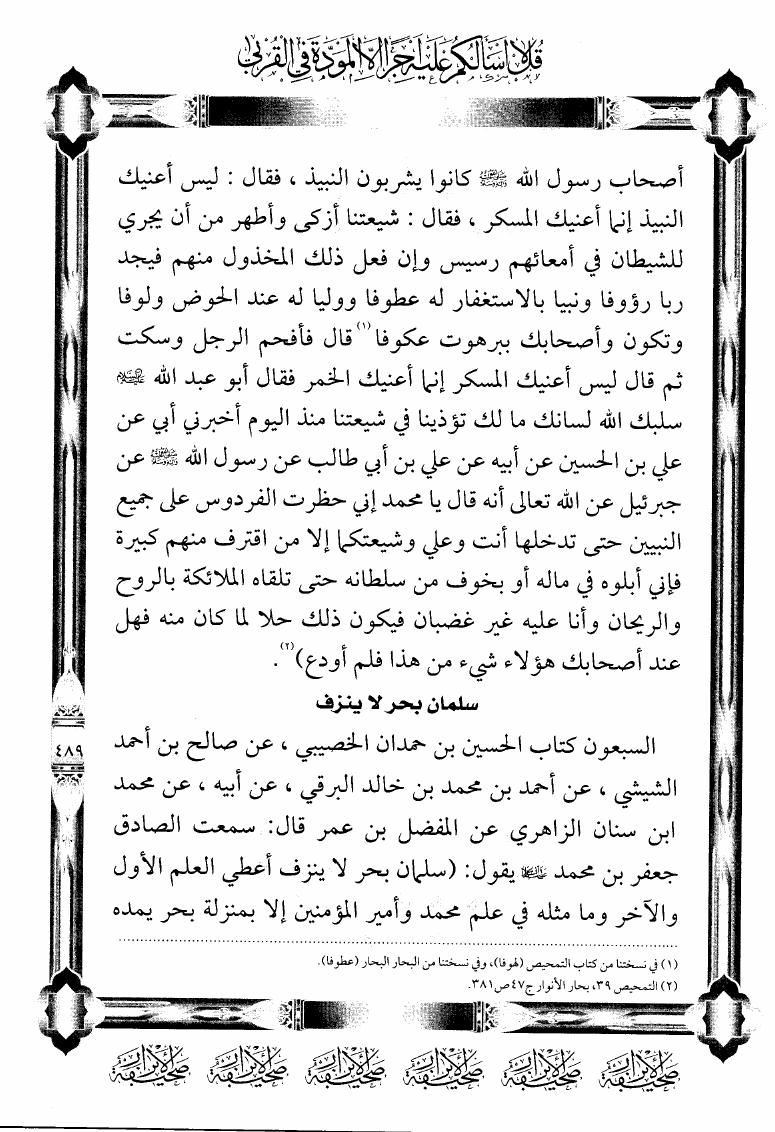 قل لا أسألكم عليه أجرا إلا المودة في القربى
أصحاب رسول الله ﷺ كانوا يشربون النبيذ ، فقال : ليس أعنيك
النبيذ إنما أعنيك المسكر ، فقال : شيعتنا أزكى وأطهر من أن يجري
للشيطان في أمعائهم رسيس وإن فعل ذلك المخذول منهم فيجد
ربا رؤوفا ونبيا بالاستغفار له عطوفا ووليا له عند الحوض ولوفا
وتكون وأصحابك ببرهوت عكوفا(١) قال فأفحم الرجل وسكت
ثم قال ليس أعنيك المسكر إنما أعنيك الخمر فقال أبو عبد الله عليه السلام
سلبك الله لسانك ما لك تؤذينا في شيعتنا منذ اليوم أخبرني أبي عن
علي بن الحسين عن أبيه عن علي بن أبي طالب عن رسول الله ﷺ عن
جبرئيل عن الله تعالى أنه قال يا محمد إني حظرت الفردوس على جميع
النبيين حتى تدخلها أنت وعلي وشيعتكما إلا من اقترف منهم كبيرة
فإني أبلوه في ماله أو بخوف من سلطانه حتى تلقاه الملائكة بالروح
والريحان وأنا عليه غير غضبان فيكون ذلك حلا لما كان منه فهل
عند أصحابك هؤلاء شيء من هذا فلم أودع)(٢).
سلمان بحر لا ينزف
٤٨٩
السبعون كتاب الحسين بن حمدان الخصيبي ، عن صالح بن أحمد
الشيشي ، عن أحمد بن محمد بن خالد البرقي ، عن أبيه ، عن محمد
ابن سنان الزاهري عن المفضل بن عمر قال: سمعت الصادق
جعفر بن محمد عليه السلام يقول: (سلمان بحر لا ينزف أعطي العلم الأول
والآخر وما مثله في علم محمد وأمير المؤمنين إلا بمنزلة بحر يمده
(١) في نسختنا من كتاب التمحيص (لهوفا)، وفي نسختنا من البحار البحار (عطوفا).
(٢) التمحيص ٣٩، بحار الأنوار ج٤٧ ص٣٨١.